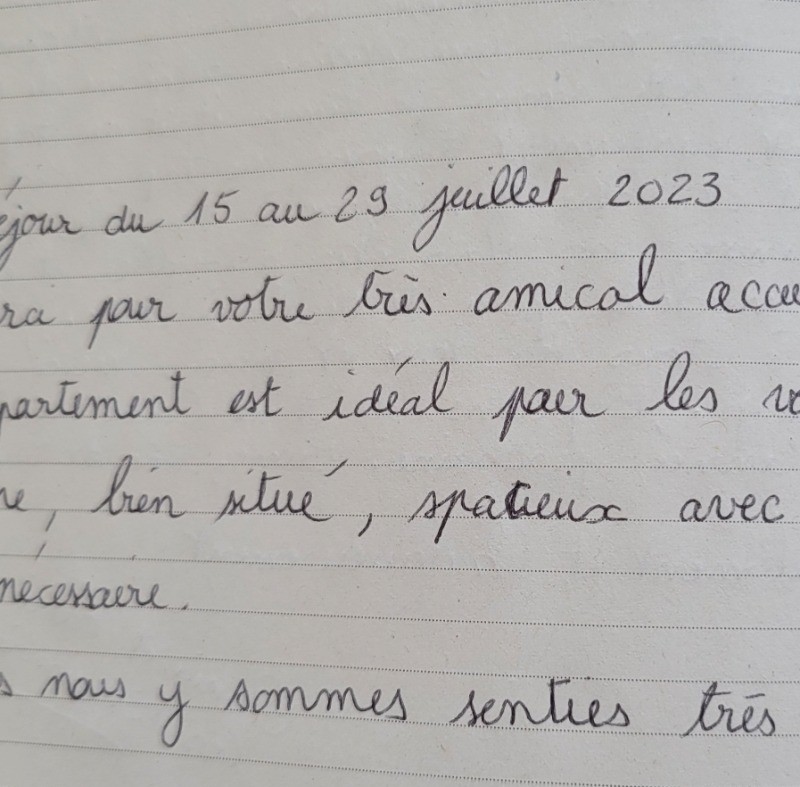 éjour du 15 au 29 juillet 2023
ra pour votre très amical accue
partement est idéal pour les vo
re, bien situé, spacieux avec
nécessaire.
s nous y sommes senties très